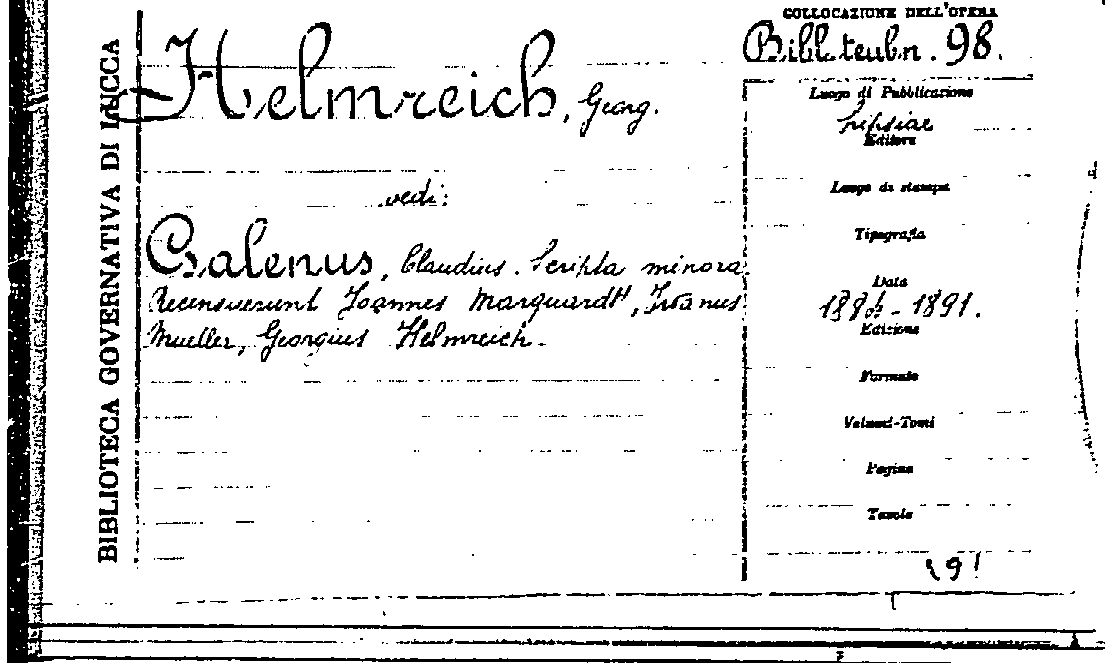 BIBLIOTECA GOVERNATIVA DI LUCCA
COLLOCAZIONE DELL'OPERA
Bibl. teubn. 98.
Helmreich, Georg.
vedi:
Galenus, Claudius. Scripta minora.
Recensuerunt Ioannes Marquardt, Iwanus
Mueller, Georgius Helmreich.
Luogo di Pubblicazione
Lipsiae
Editore
Luogo di stampa
Tipografia
Data
1884-1891.
Edizione
Formato
Volumi-Tomi
Pagine
Tavole